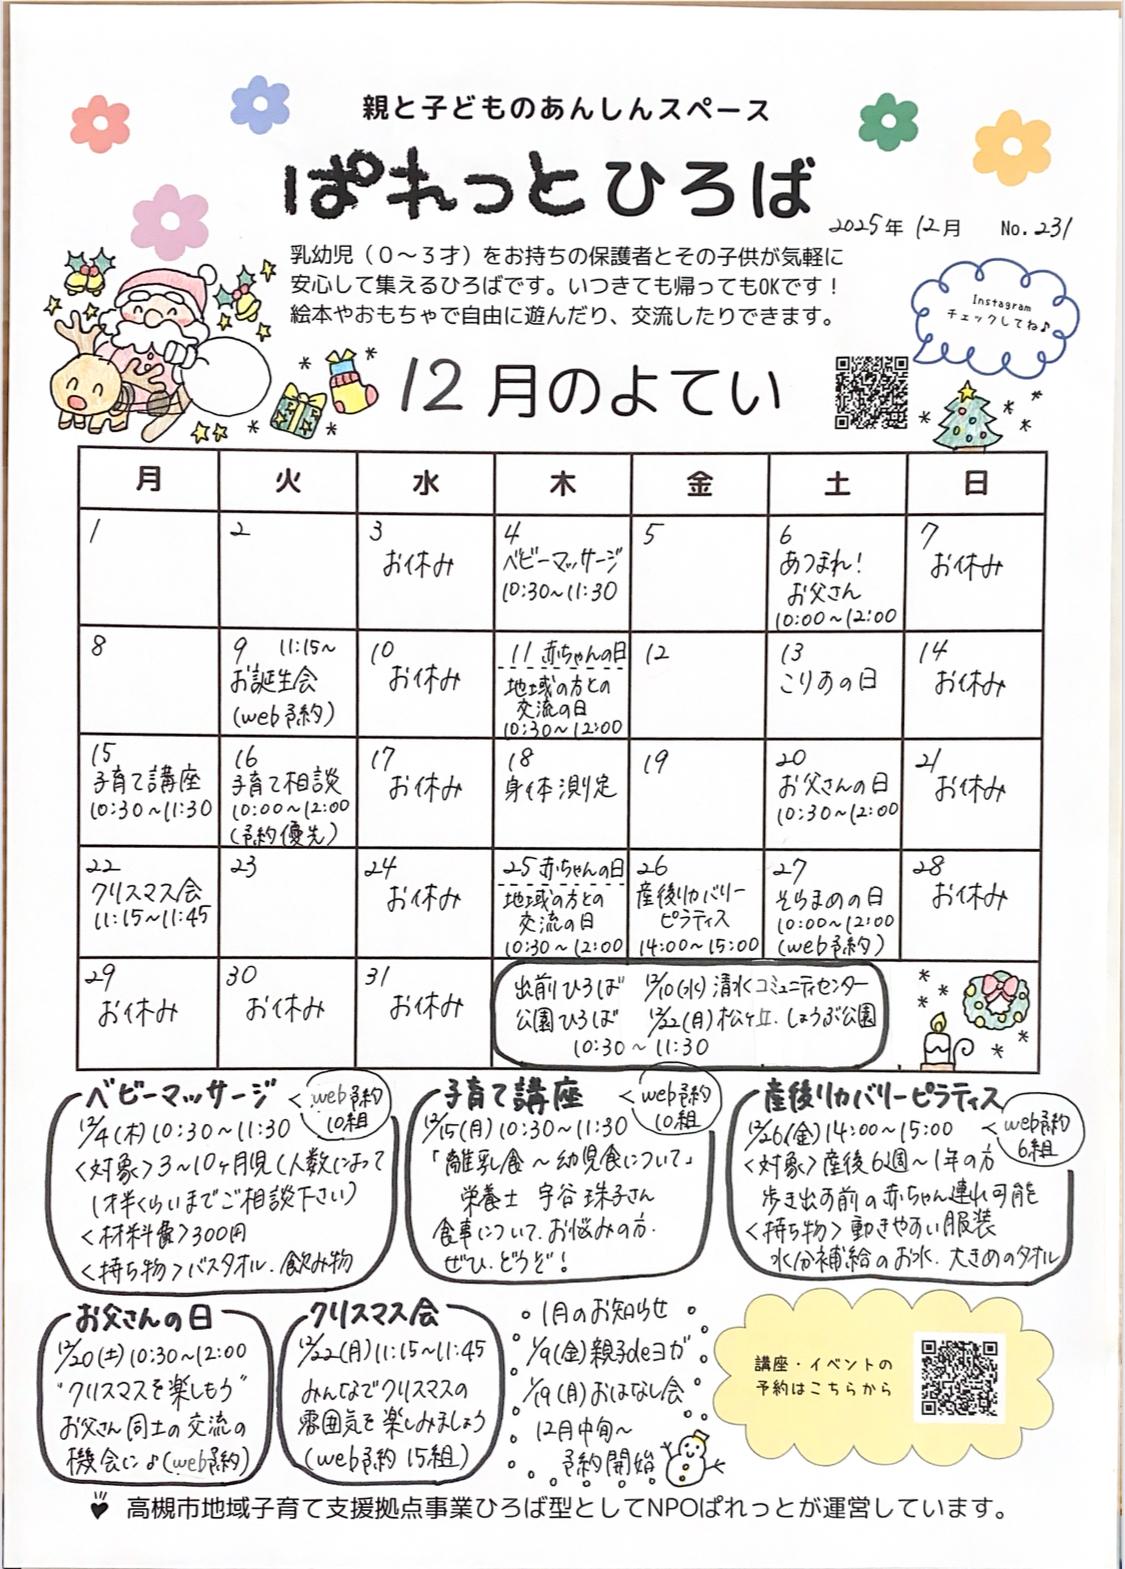 親と子どものあんしんスペース
ぱれっとひろば
2025年 12月 No.231
乳幼児（0～3才）をお持ちの保護者とその子供が気軽に
安心して集えるひろばです。いつきても帰ってもOKです！
絵本やおもちゃで自由に遊んだり、交流したりできます。
Instagram
チェックしてね♪
12月のよてい
月 火 水 木 金 土 日
1
2
3
お休み
4
ベビーマッサージ
10:30～11:30
5
6
あつまれ！
お父さん
10:00～12:00
7
お休み
8
9 11:15～
お誕生会
(web予約)
10
お休み
11 赤ちゃんの日
地域の方との
交流の日
10:30～12:00
12
13
こりあの日
14
お休み
15
子育て講座
10:30～11:30
16
子育て相談
10:00～12:00
(予約優先)
17
お休み
18
身体測定
19
20
お父さんの日
10:30～12:00
21
お休み
22
クリスマス会
11:15～11:45
23
24
お休み
25 赤ちゃんの日
地域の方との
交流の日
10:30～12:00
26
産後リカバリー
ピラティス
14:00～15:00
27
そらまめの日
10:00～12:00
(web予約)
28
お休み
29
お休み
30
お休み
31
お休み
出前ひろば 12/10(水) 清水コミュニティセンター
公園ひろば 12/22(月) 松ヶ丘．しょうぶ公園
10:30～11:30
ベビーマッサージ
web予約
10組
12/4(木) 10:30～11:30
<対象> 3～10ヶ月児(人数によって
1才半くらいまでご相談下さい)
<材料費> 300円
<持ち物> バスタオル．飲み物
子育て講座
web予約
10組
12/15(月) 10:30～11:30
「離乳食～幼児食について」
栄養士 宇谷 珠子さん
食事について．お悩みの方．
ぜひ．どうぞ！
産後リカバリーピラティス
web予約
6組
12/26(金) 14:00～15:00
<対象> 産後6週～1年の方
歩き出す前の赤ちゃん連れ可能
<持ち物> 動きやすい服装
水分補給のお水．大きめのタオル
お父さんの日
12/20(土) 10:30～12:00
"クリスマスを楽しもう"
お父さん同士の交流の
機会に♪(web予約)
クリスマス会
12/22(月) 11:15～11:45
みんなでクリスマスの
雰囲気を楽しみましょう
(web予約 15組)
1月のお知らせ
1/9(金) 親子deヨガ
1/19(月) おはなし会
12月中旬～
予約開始
講座・イベントの
予約はこちらから
高槻市地域子育て支援拠点事業ひろば型としてNPOぱれっとが運営しています。